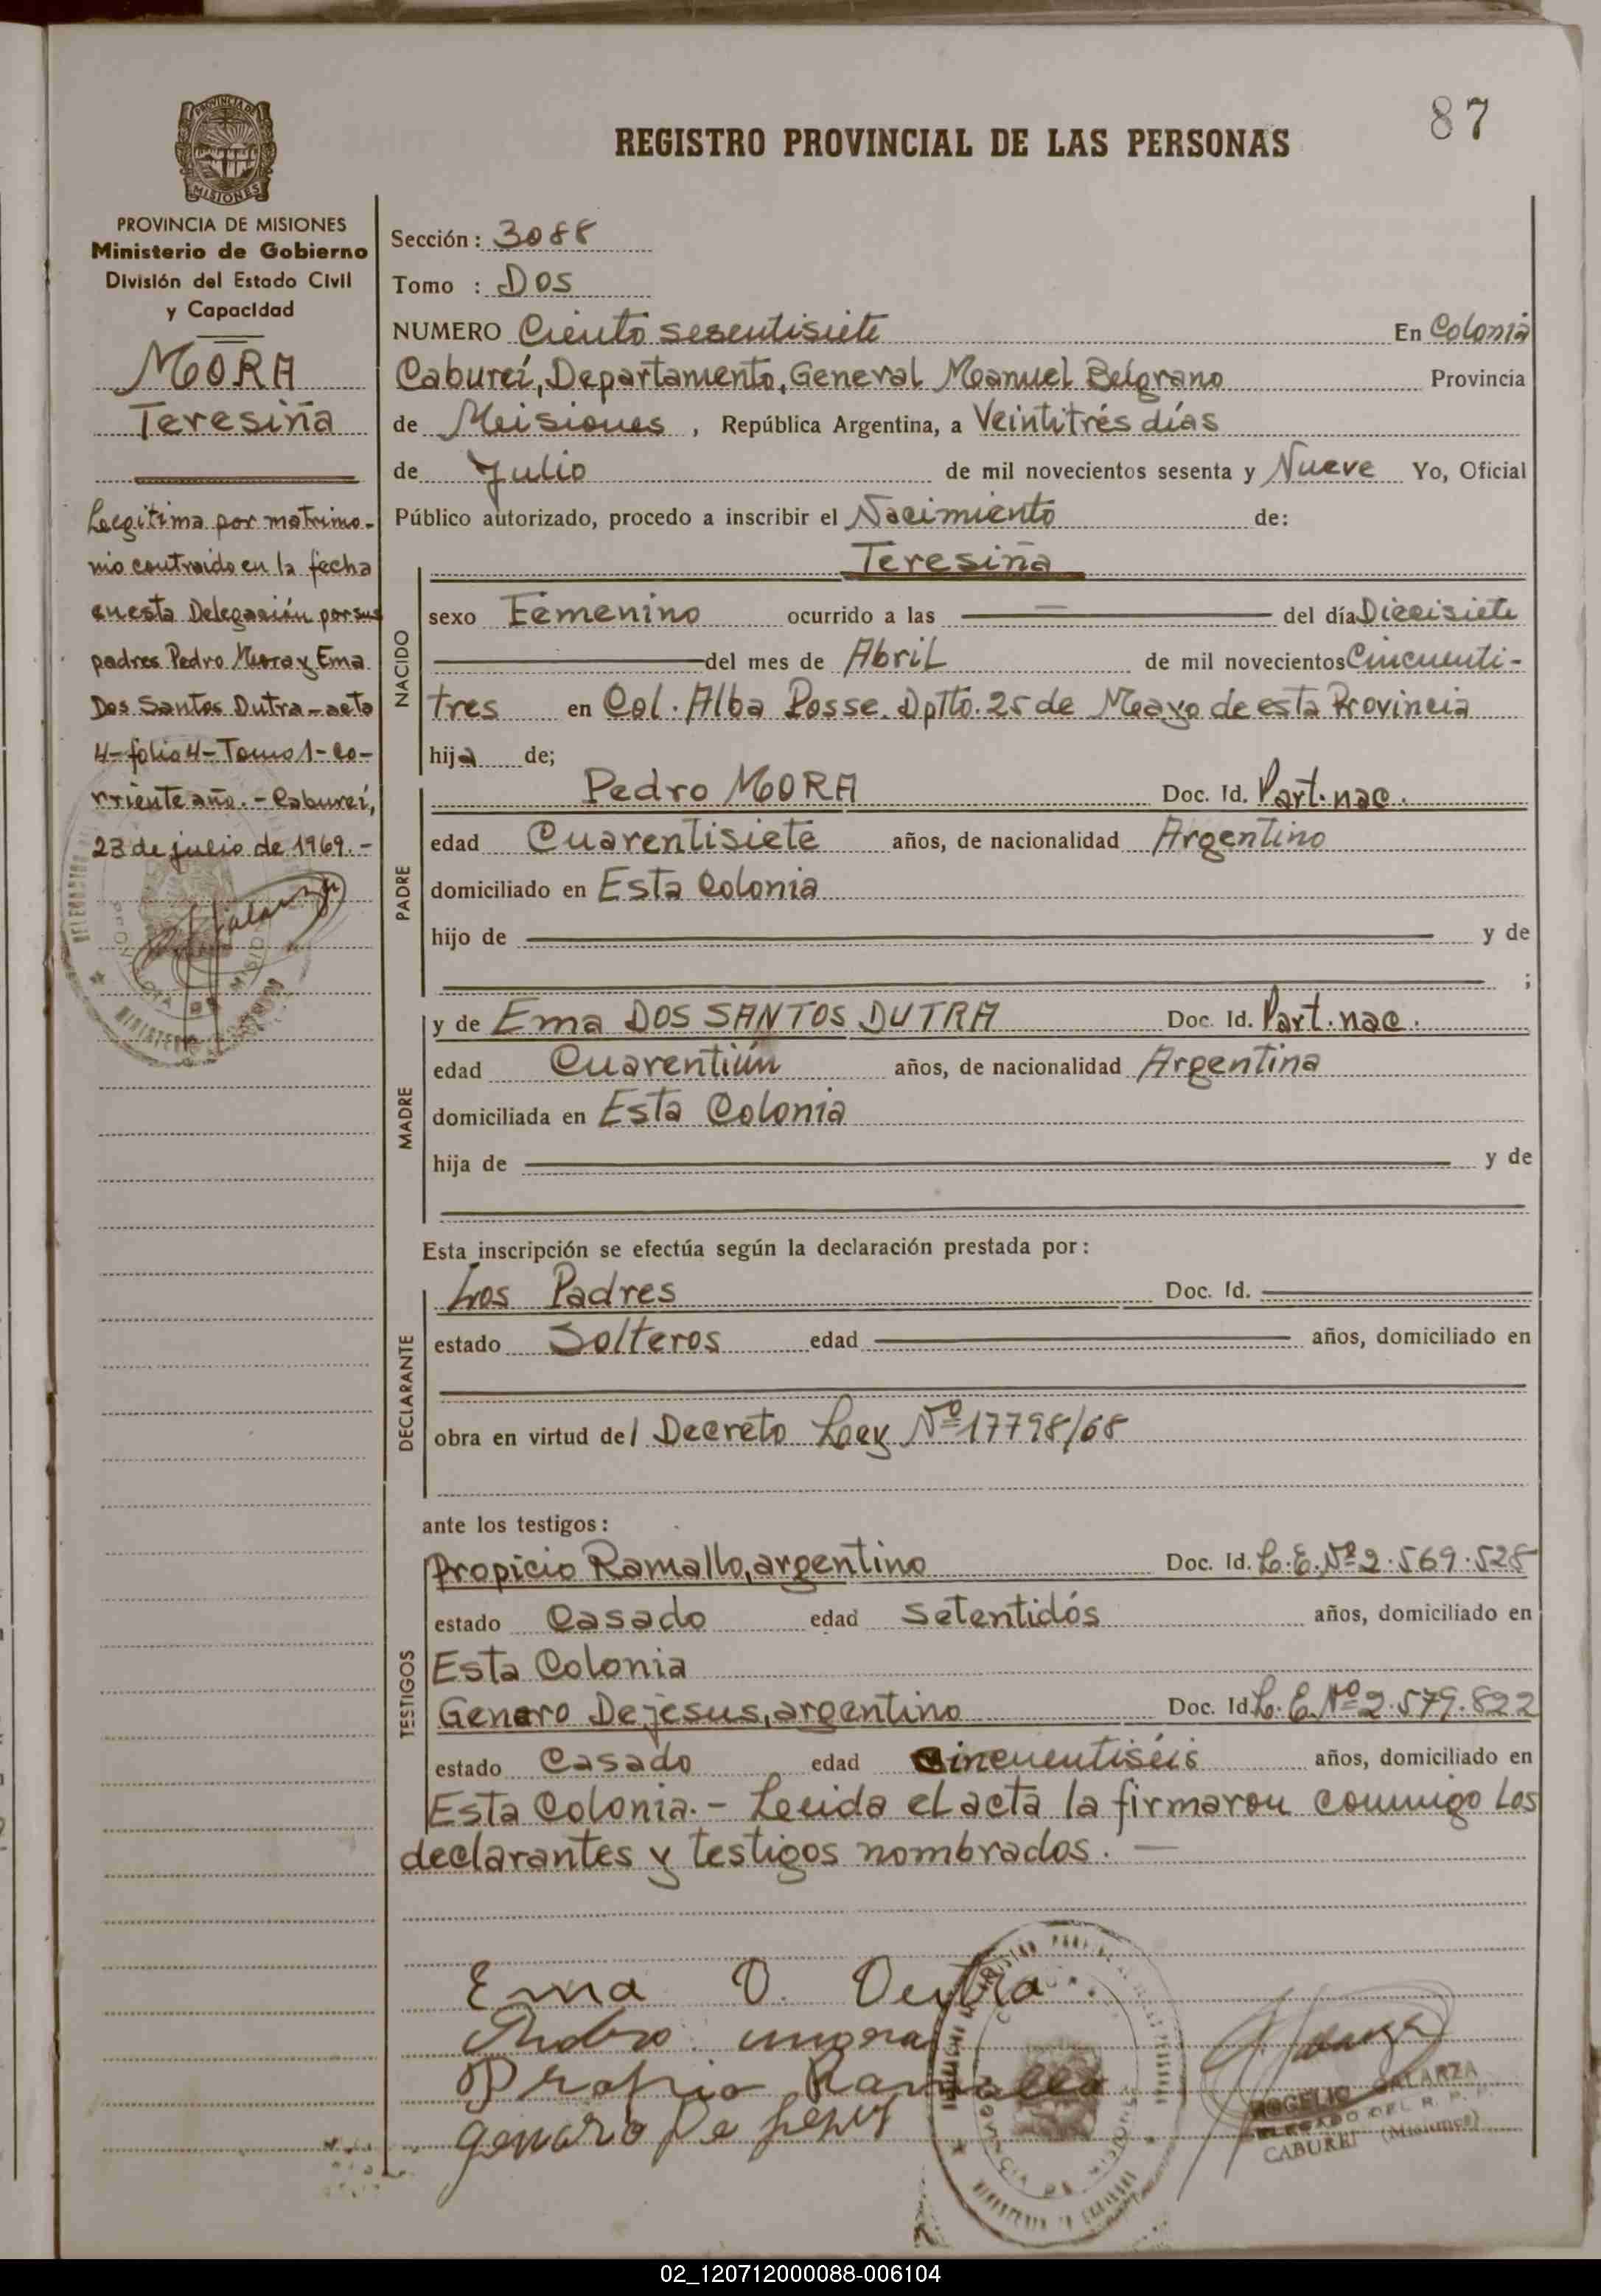 87
REGISTRO PROVINCIAL DE LAS PERSONAS
PROVINCIA DE
MISIONES
PROVINCIA DE MISIONES
Ministerio de Gobierno
División del Estado Civil
y Capacidad
MORA
Teresiña
Legitima por matrimo-
nio contraido en la fecha
en esta Delegación por sus
padres Pedro Mora y Ema
Dos Santos Dutra - acta
4 - folio 4 - Tomo 1 - co-
rriente año. - Caburei,
23 de julio de 1969. -
Sección: 3088
Tomo : Dos
NUMERO Ciento sesentisiete En Colonia
Caburei, Departamento, General Manuel Belgrano Provincia
de Misiones, República Argentina, a Veintitrés días
de Julio de mil novecientos sesenta y Nueve Yo, Oficial
Público autorizado, procedo a inscribir el Nacimiento de:
Teresiña
NACIDO
sexo Femenino ocurrido a las — del día Diecisiete
del mes de Abril de mil novecientos Cincuenti-
tres en Col. Alba Posse. Dptto. 25 de Mayo de esta Provincia
hija de;
PADRE
Pedro MORA Doc. Id. Part. nac.
edad Cuarentisiete años, de nacionalidad Argentino
domiciliado en Esta Colonia
hijo de y de
;
MADRE
y de Ema DOS SANTOS DUTRA Doc. Id. Part. nac.
edad Cuarentiún años, de nacionalidad Argentina
domiciliada en Esta Colonia
hija de y de
Esta inscripción se efectúa según la declaración prestada por:
DECLARANTE
Los Padres Doc. Id.
estado Solteros edad años, domiciliado en
obra en virtud del Decreto Ley Nº 17798/68
ante los testigos:
TESTIGOS
Propicio Ramallo, argentino Doc. Id. L. E. Nº 2.569.528
estado Casado edad Setentidós años, domiciliado en
Esta Colonia
Genaro Dejesus, argentino Doc. Id. L. E. Nº 2.579.822
estado Casado edad Cincuentiséis años, domiciliado en
Esta Colonia. - Leida el acta la firmaron conmigo los
declarantes y testigos nombrados. —
Ema D. Dutra.
Pedro mora
Propicio Ramallo
genaro De Jesus
PROVINCIA DE MISIONES
ROGELIO GALARZA
DELEGADO DEL R. P. P.
CABUREI (Misiones)
02_120712000088-006104